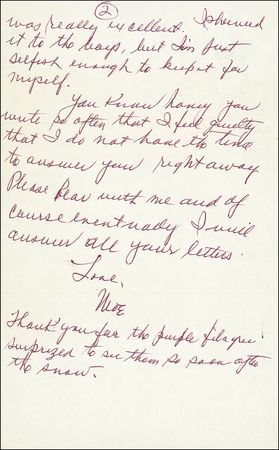 2
was really excellent. I showed
it to the boys, but I'm just
selfish enough to keep it for
myself.
You know honey you
write so often that I feel guilty
that I do not have the time
to answer you right away
Please bear with me and of
course eventually I will
answer all your letters.
Love,
Moe
Thank you for the purple
surprized to see them so soon after
the snow.